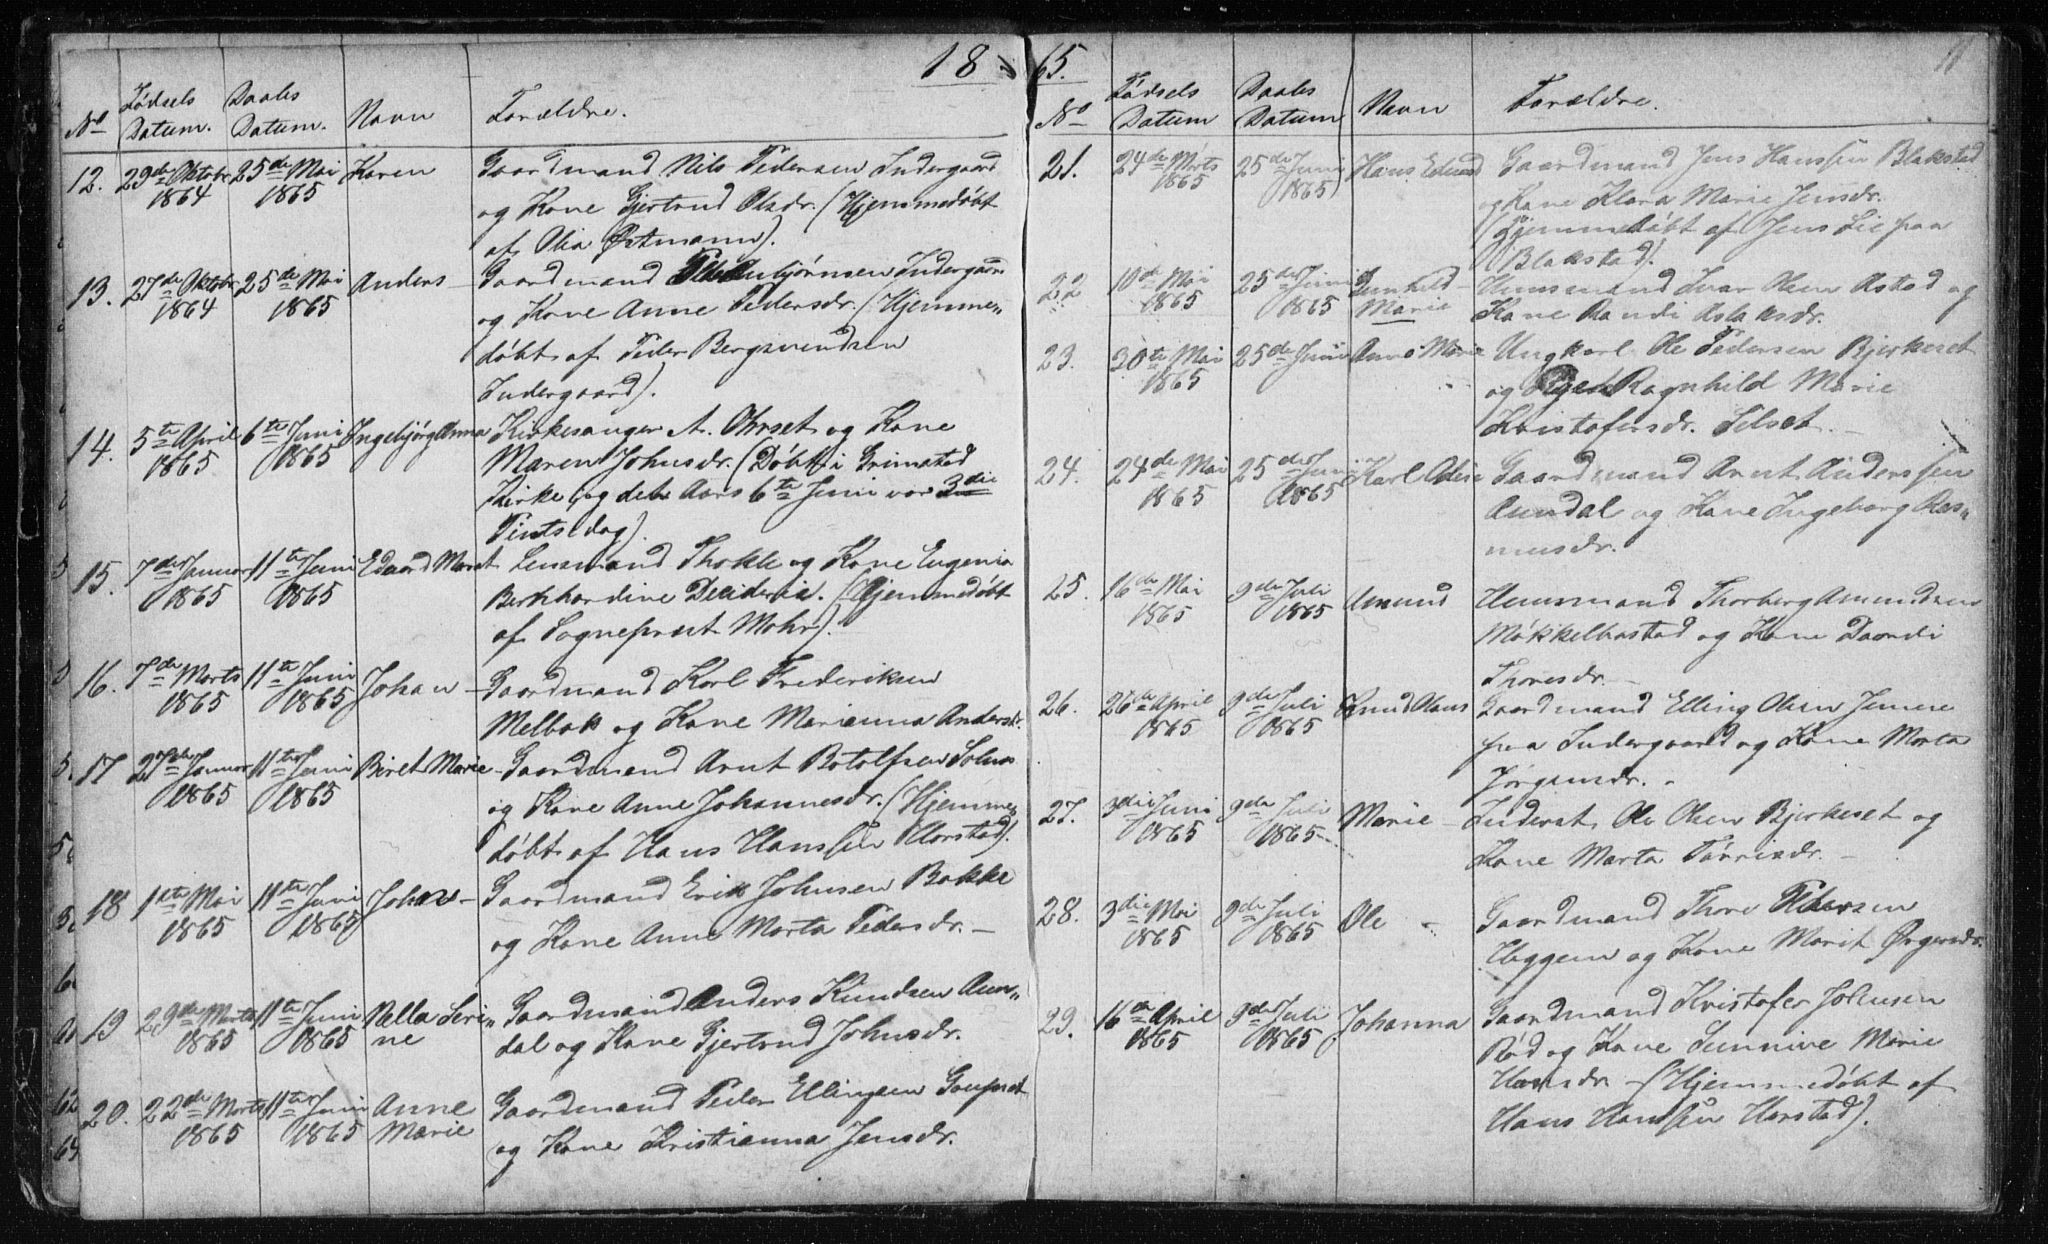 18 65.
No Födsels Datum. Daabs Datum. Navn Forældre.
12. 29de Oktobr 1864 25de Mai 1865 Karen Gaardmand Nils Pedersen Indergaard
og Kone Gjertrud Olsdr. (Hjemmedöbt
af Olia Östmann).
13. 27de Oktobr 1864 25de Mai 1865 Anders Gaardmand Indergaard
og Kone Anne Pedersdr. (Hjemme„
döbt af Peder Bergsvendsen
Indergaard).
14. 5te April 1865 6te Juni 1865 Ingebjörg Anna Kirkesanger A. Ohrset og Kone
Maren Johnsdr. (Döbt i Grimstad
Kirke, og det Aars 6te Juni var 3die
Pintsdag).
15. 7de Januar 1865 11te Juni 1865 Edvard Lensmand og Kone Eugenia
(Hjemmedöbt
af Sogneprest Mohr).
16. 7de Marts 1865 11te Juni 1865 Johan – Gaardmand Karl Frederiksen
Melbak og Kone Marianna Andersdr.
17 27de Januar 1865 11te Juni 1865 Beret Marie – Gaardmand Arnt Botolfsen
og Kone Anne Johannesdr. (Hjemme„
döbt af Hans Hanssen Harstad).
18 1ste Mai 1865 11te Juni 1865 Johan – Gaardmand Erik Johnsen Bakke
og Kone Anne Marta Pedersdr. –
19 29de Marts 1865 11te Juni 1865 Pella Seri„ne Gaardmand Anders Knudsen Aun„
dal og Kone Gjertrud Johnsdr.
20. 22de Marts 1865 11te Juni 1865 Anne Marie Gaardmand Peder Ellingsen
og Kone Kristianna Jensdr.
No Födsels Datum Daabs Datum Navn Forældre.
21. 24de Marts 1865 25de Juni 1865 Hans Gaardmand Jens Hanssen Blakstad
og Kone Klara Marie Jensdr.
(Hjemmedöbt af Jens Lie paa
Blakstad).
22 10de Mai 1865 25de Juni 1865 Gunhild Marie Husmand Ivar Olsen Astad og
Kone Randi Aslaksdr.
23. 30te Mai 1865 25de Juni Anne Marie Ungkarl Ole Pedersen Bjerkeset
og Pigen Ragnhild Marie
Kristofersdr. Silset. –
24. 24de Mai 1865 25de Juni 1865 Karl Gaardmand Arnt Anderssen
Aundal og Kone Ingeborg Ras„
musdr.
25. 16de Mai 1865 9de Juli 1865 Amund Husmand Thorberg Amundsen
og Kone
Thoresdr. –
26. 26de April 1865 9de Juli 1865 Knud Hans Gaardmand Elling Olsen
paa Indergaard og Kone Marta
Jörgensdr. –
27. 3die Juni 1865 9de Juli 1865 Marie – Inderst Ole Olsen Bjerkeset og
Kone Marta Törrisdr. –
28. 3die Mai 1865 9de Juli 1865 Ole – Gaardmand Thore Pedersen
Haggem og Kone Marit
29. 16de April 1865 9de Juli 1865 Johanna Gaardmand Kristofer Johnsen
Röd og Kone Sunnive Marie
Hansdr – (Hjemmedöbt af
Hans Hanssen Harstad).